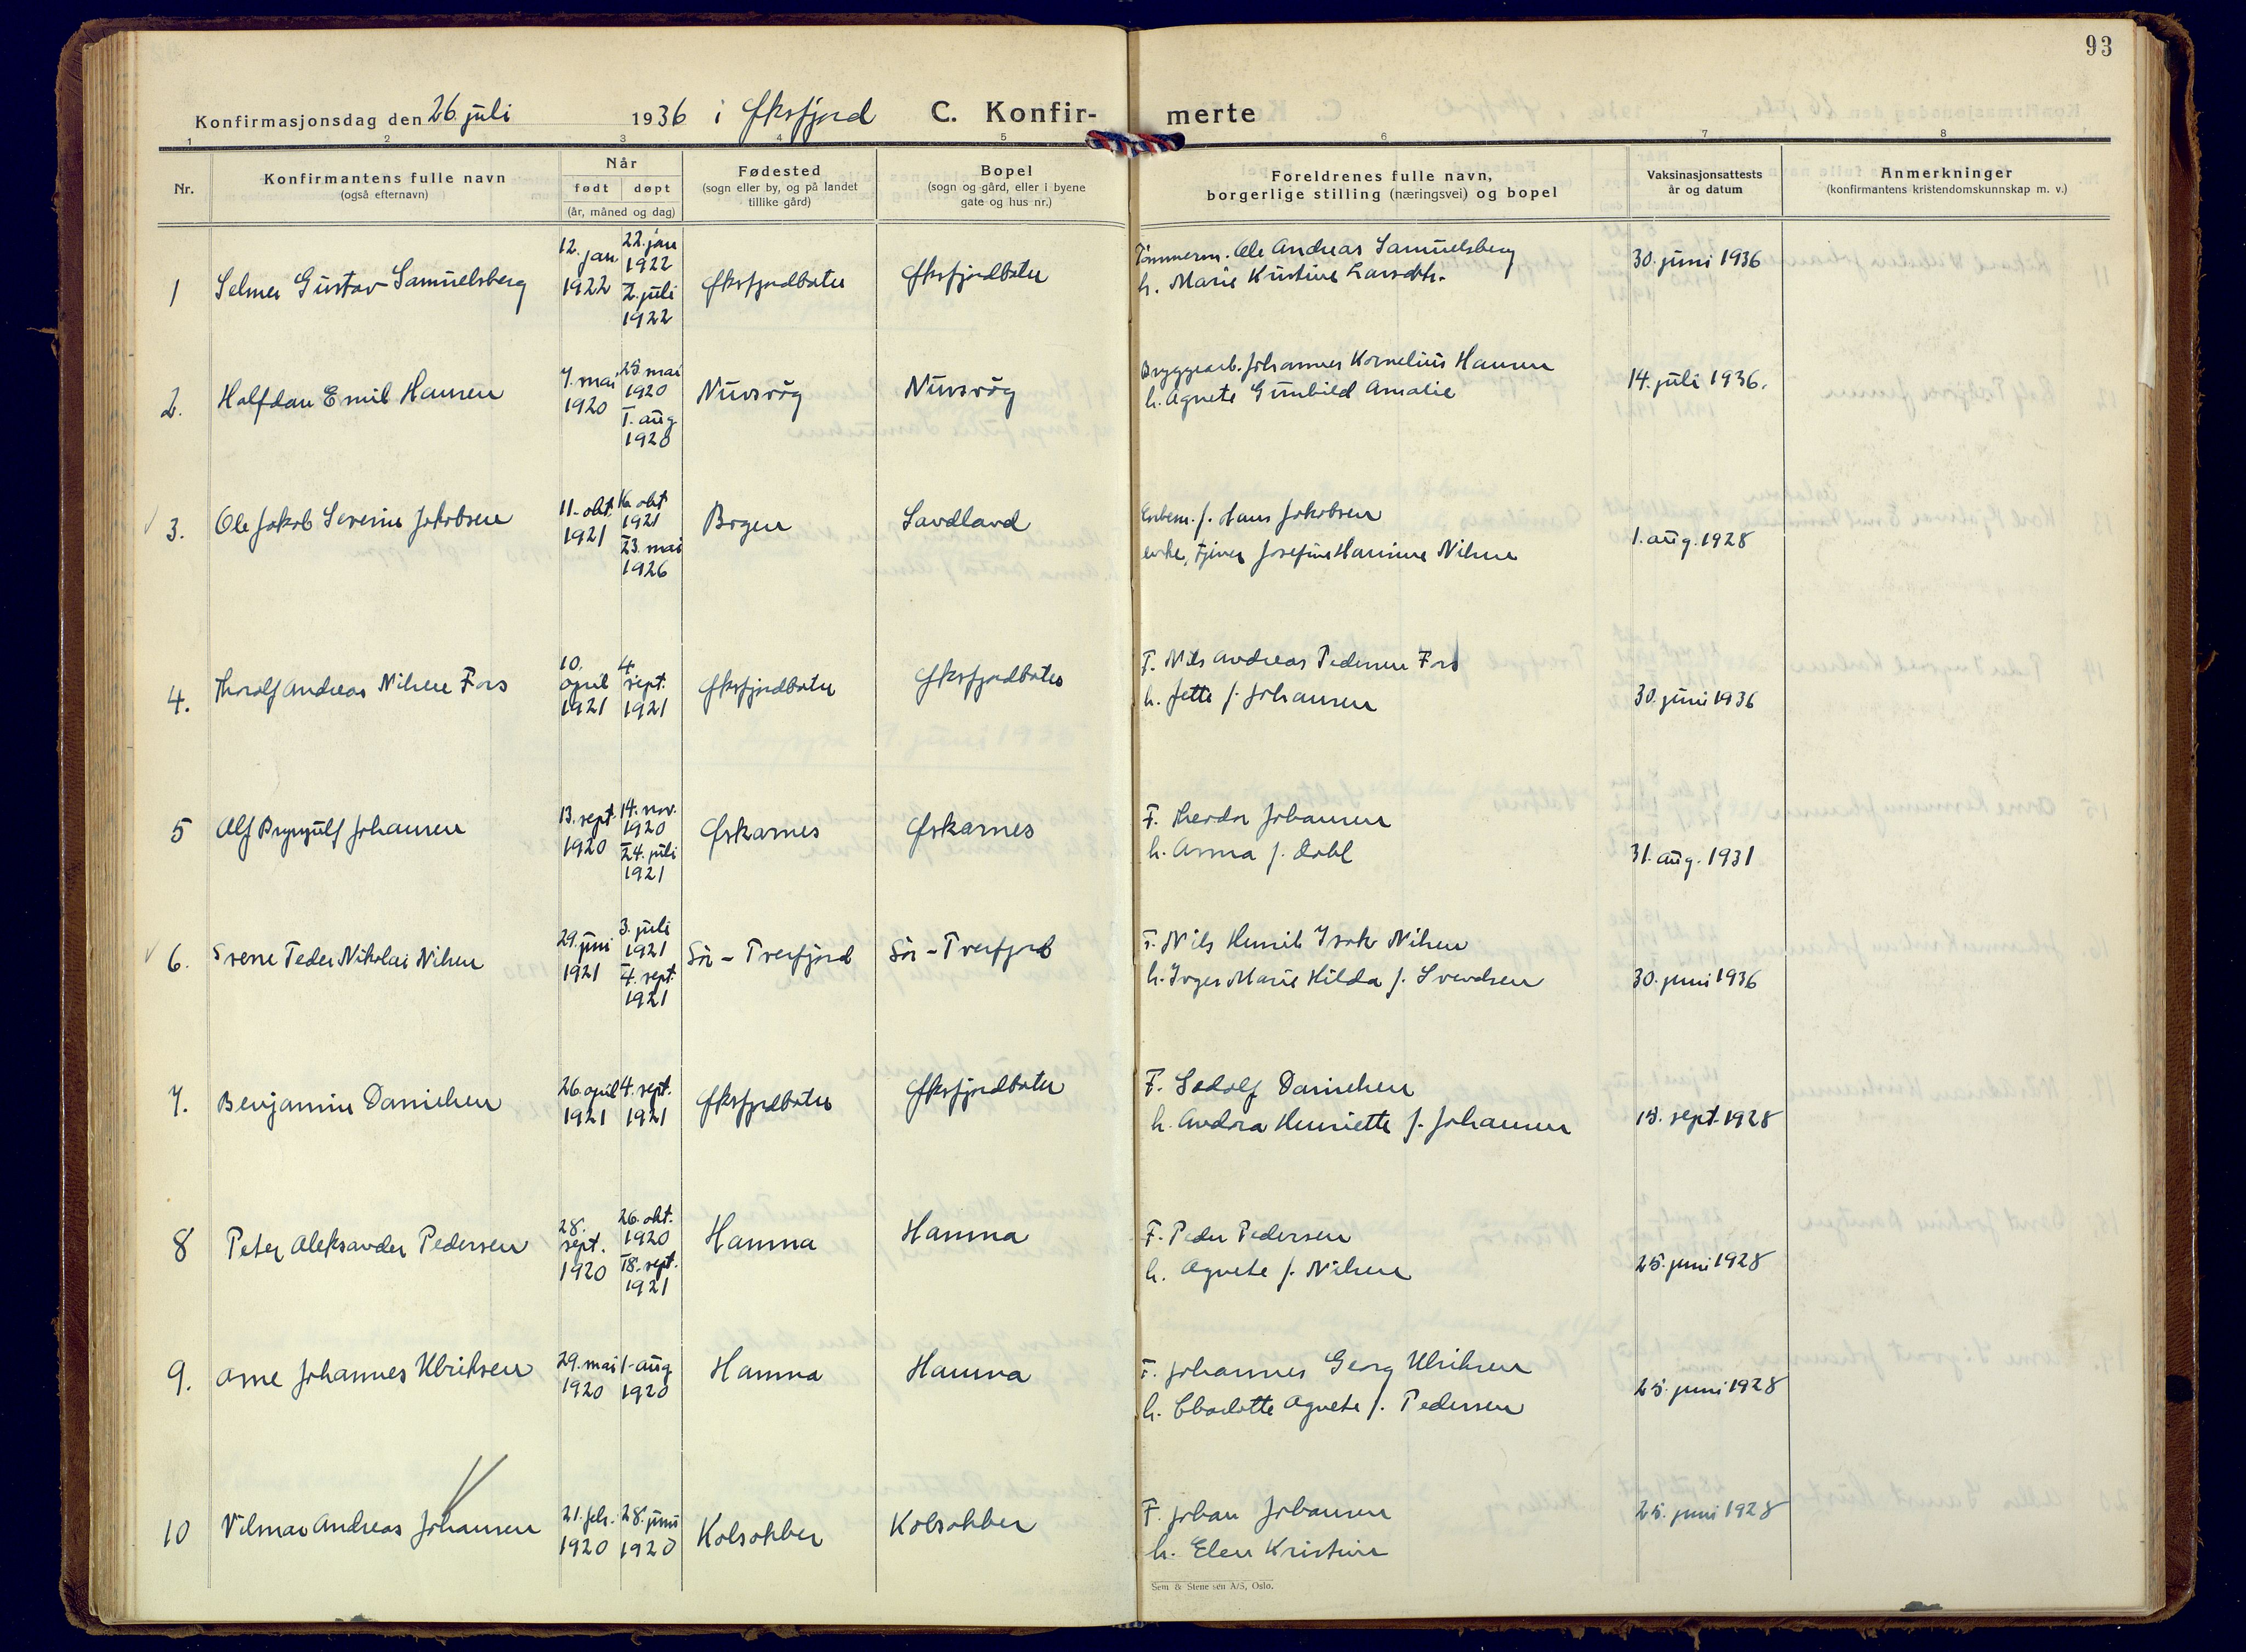 93
Konfirmasjonsdag den 26. juli 1936 i Øksfjord C. Konfir- merte
1 2 3 4 5 6 7 8
Nr. Konfirmantens fulle navn (også efternavn) Når født døpt (år, måned og dag) Fødested (sogn eller by, og på landet tillike gård) Bopel (sogn og gård, eller i byene gate og hus nr.) Foreldrenes fulle navn, borgerlige stilling (næringsvei) og bopel Vaksinasjonsattests år og datum Anmerkninger (konfirmantens kristendomskunnskap m. v.)
1 Selmer Gustav Samuelsberg 12. jan 1922 22. jan 1922 2. juli 1922 Øksfjordbotn Øksfjordbotn Tömmerm. Ole Andreas Samuelsberg
h. Marie Kristine Larsdtr. 30. juni 1936
2. Halfdan Emil Hansen 7. mai 1920 25. mai 1920 1. aug 1920 Nuvsvåg Nuvsvåg Bryggearb. Johannes Kornelius Hansen
h. Agnete Gunhild Amalie 14. juli 1936.
3. Ole Jakob Severin Jakobsen 11. okt 1921 16. okt 1921 23. mai 1926 Bogen Sandland f. Hans Jakobsen
enke, Josefine Hansine Nilsen 1. aug. 1928
4. Thoralf Andreas Nilsen Fors 10. april 1921 4. sept. 1921 Øksfjordbotn Øksfjordbotn F. Nils Andreas Pedersen Fors
h. Jette f. Johansen 30. juni 1936
5 Alf Brynjulf Johansen 13. sept. 1920 14. nov. 1920 24. juli 1921 Øskarnes Øskarnes F. Theodor Johansen
h. Anna f. Dahl 31. aug. 1931
6. Svene Peder Nikolai Nilsen 29. juni 1921 3. juli 1921 4. sept. 1921 Sör-Tverfjord Sör-Tverfjord F. Nils Henrik Isak Nilsen
h. Inger Marie Hilda f. Svendsen 30. juni 1936
7. Benjamin Danielsen 26. april 1921 4. sept. 1921 Øksfjordbotn Øksfjordbotn F. Ludolf Danielsen
h. Andora Henriette f. Johansen 18. sept. 1928
8 Peter Aleksander Pedersen 28. sept. 1920 26. okt. 1920 18. sept. 1921 Hamna Hamna F. Peder Pedersen
h. Agnete f. Nilsen 25. juni 1928
9. Arne Johannes Ulriksen 29. mai 1920 1. aug 1920 Hamna Hamna F. Johannes Georg Ulriksen
h. Charlotte Agnete f. Pedersen 25. juni 1928
10 Vilmar Andreas Johansen 21. feb. 1920 28. juni 1920 Kolsokker Kolsokker F. Johan Johansen
h. Elen Kristine 25. juni 1928
Sem & Stenersen A/S, Oslo.